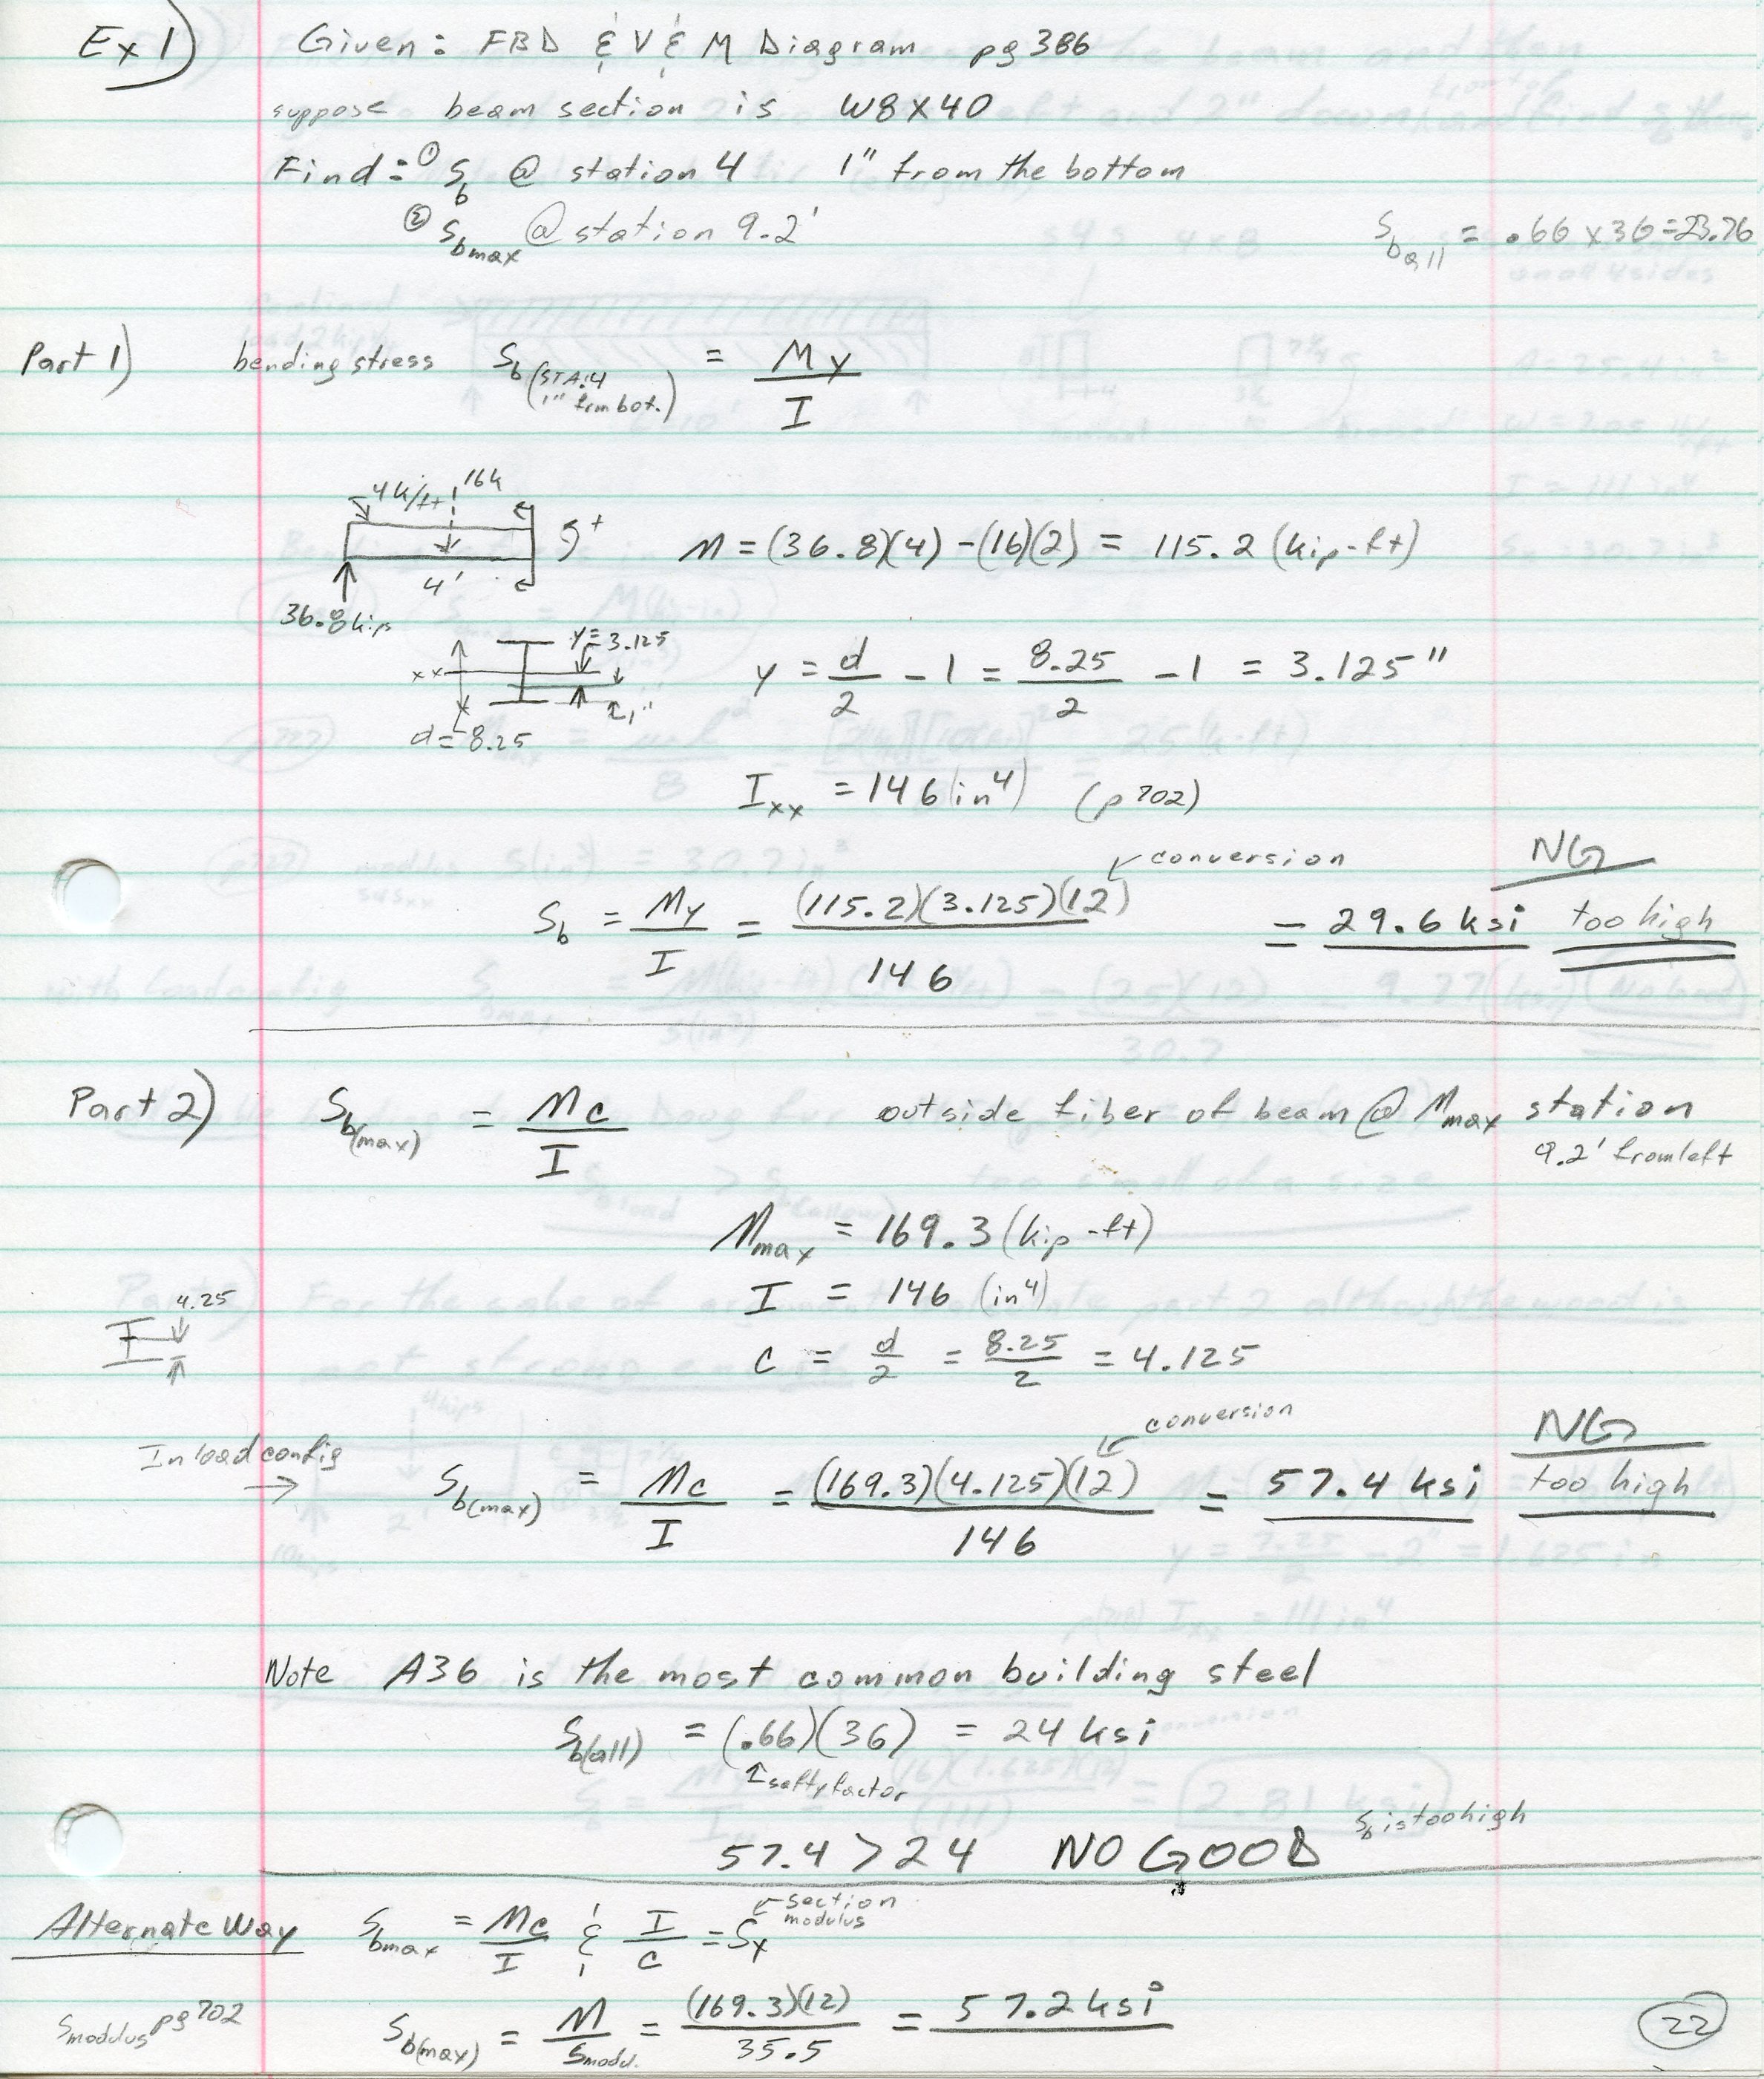 Ex 1) Given: FBD & V & M Diagram pg 386
suppose beam section is W8X40
Find: ① Sb @ station 4 1" from the bottom
② Sbmax @ station 9.2'
Sb all = .66 x 36 = 23.76
Part 1) bending stress Sb (STA:4 1" frm bot.) = My / I
4k/ft 16k
4'
36.8 kips
M = (36.8)(4) - (16)(2) = 115.2 (kip-ft)
y = 3.125
xx
1"
d = 8.25
y = d/2 - 1 = 8.25/2 - 1 = 3.125"
Ixx = 146 (in⁴) (p 702)
conversion
NG
Sb = My / I = (115.2)(3.125)(12) / 146 = 29.6 ksi too high
Part 2) Sb(max) = Mc / I outside fiber of beam @ Mmax station
9.2' from left
Mmax = 169.3 (kip-ft)
I = 146 (in⁴)
4.25
c = d/2 = 8.25/2 = 4.125
conversion
NG
In load config → Sb(max) = Mc / I = (169.3)(4.125)(12) / 146 = 57.4 ksi too high
Note A36 is the most common building steel
Sb(all) = (.66)(36) = 24 ksi
↑ saftyfactor
57.4 > 24 NO GOOD Sb is too high
Alternate Way Sbmax = Mc / I & I / C = Sx ← section modulus
Smodulus pg 702 Sb(max) = M / Smodu. = (169.3)(12) / 35.5 = 57.2 ksi
22